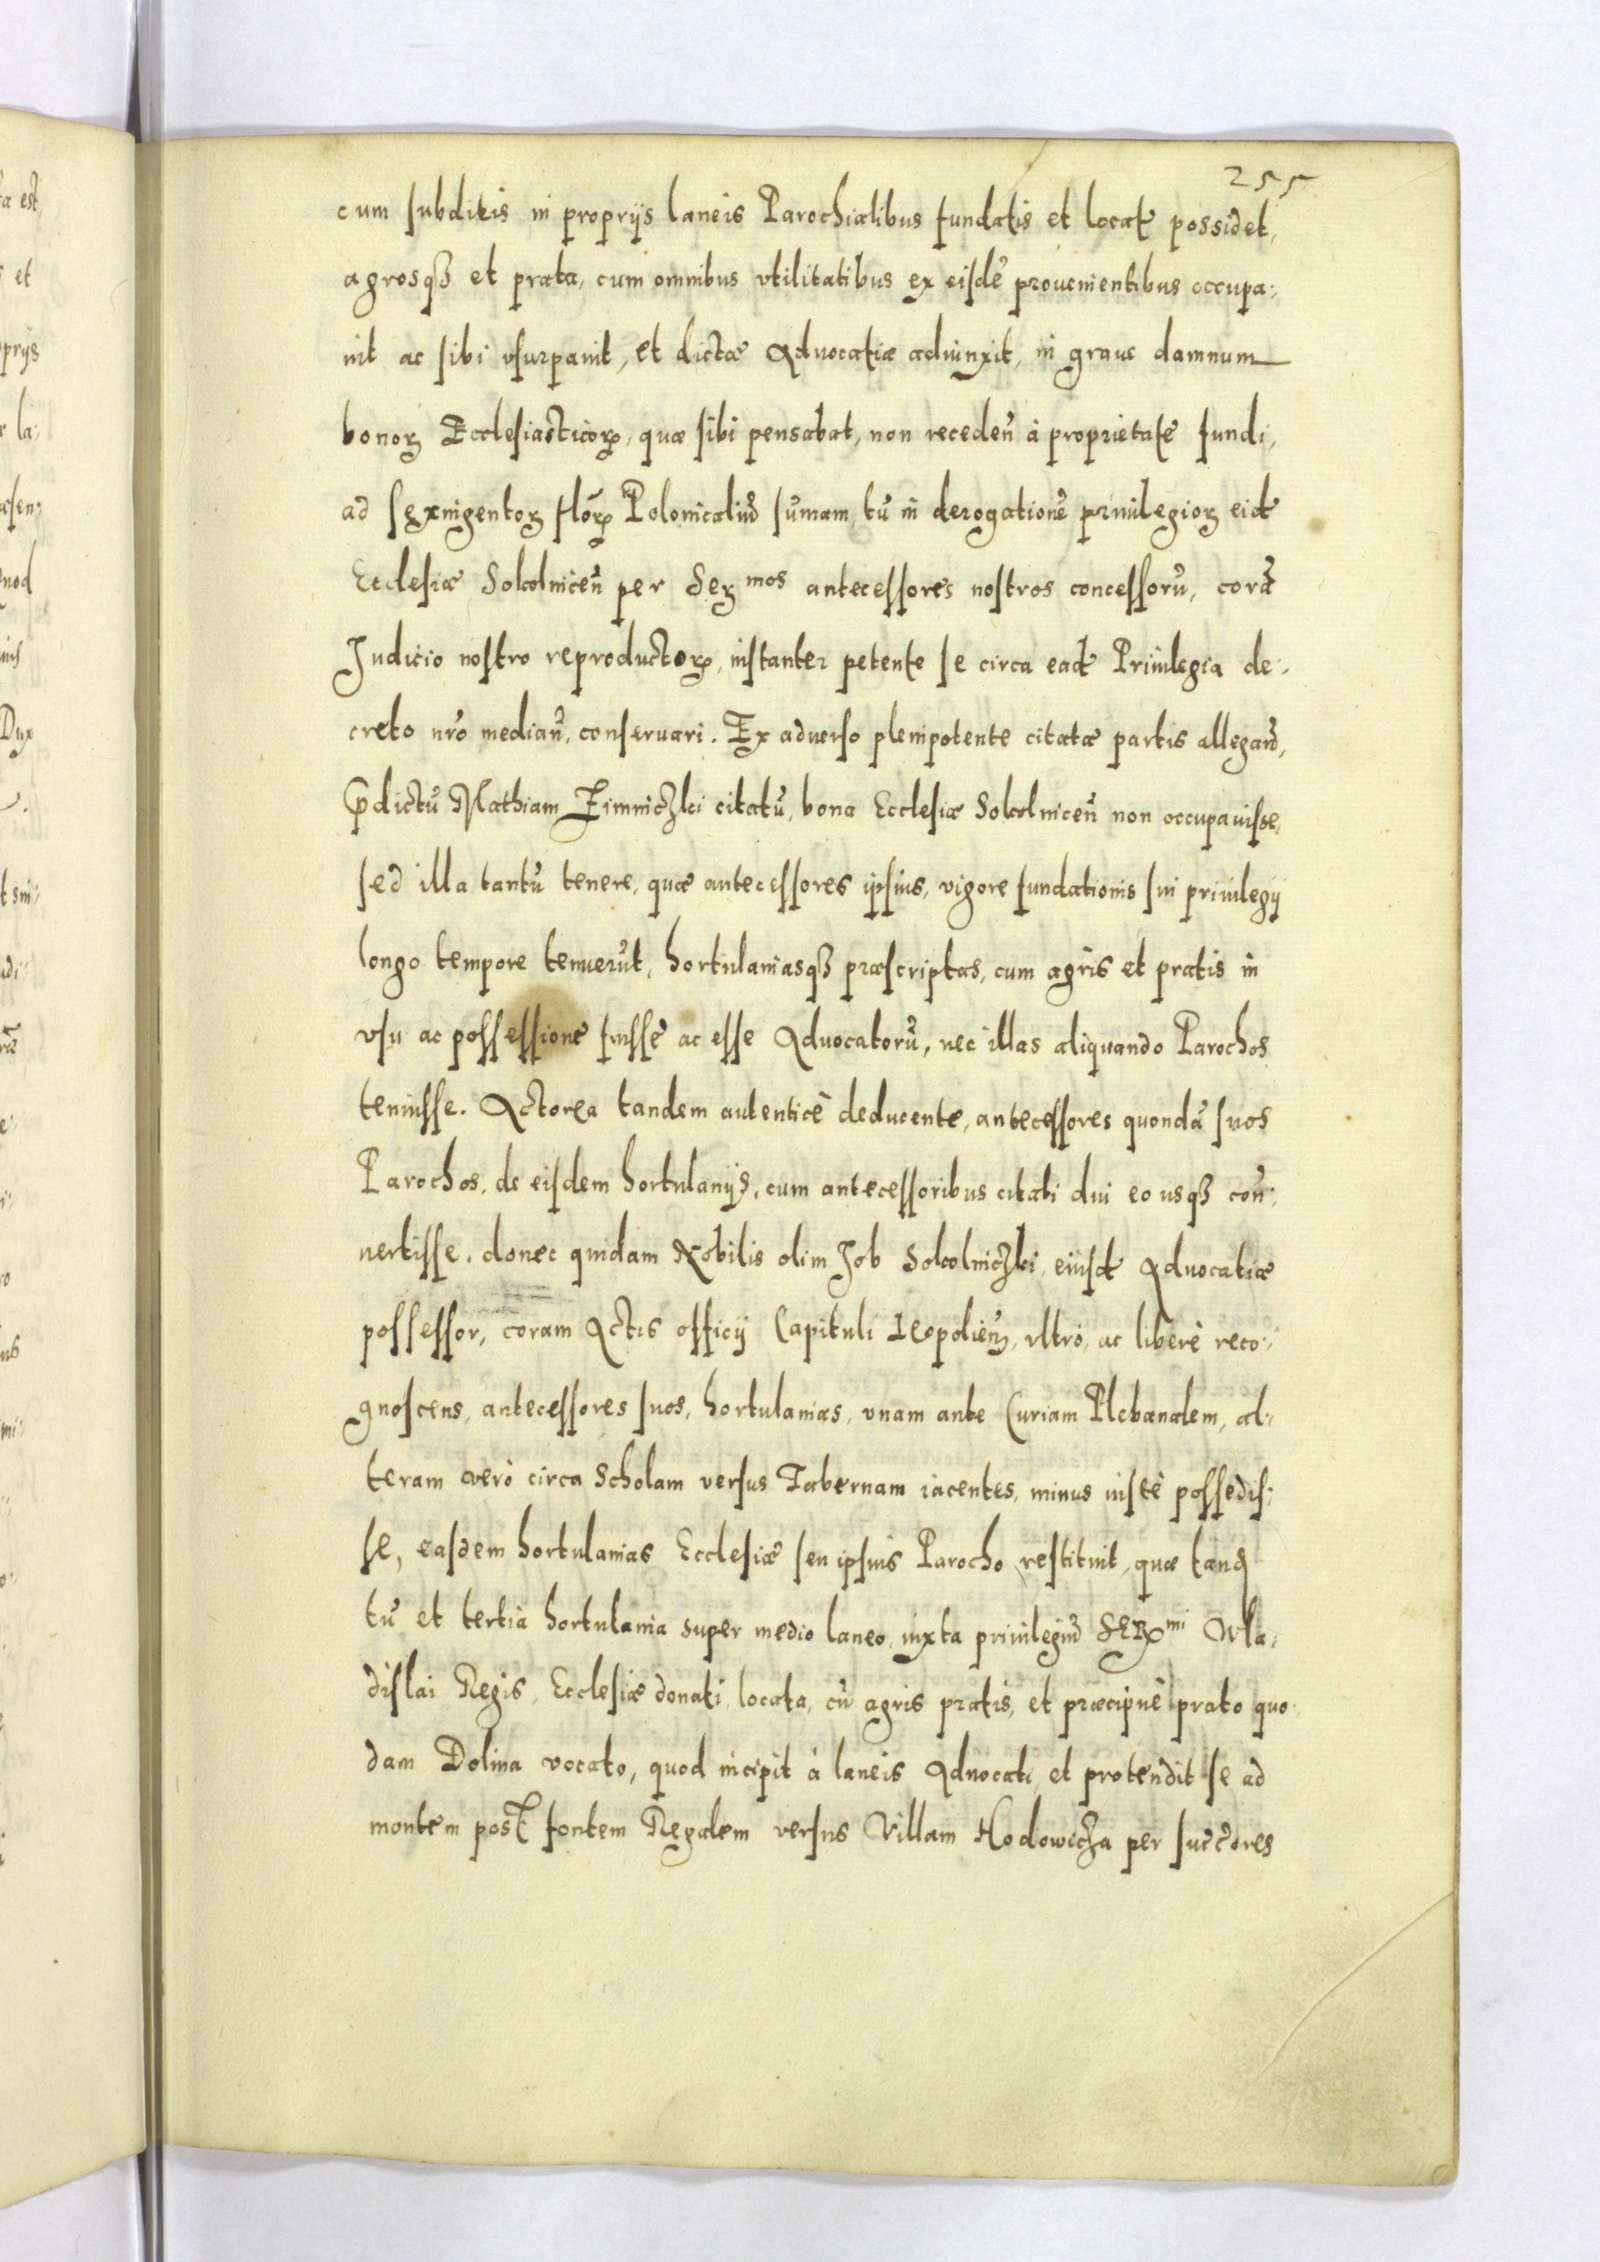 255
cum subditis in proprijs laneis Parochialibus fundatis et locat possidet,
agrosq3 et prata, cum omnibus vtilitatibus ex eisdē prouenientibus occupa:
uit ac sibi vsurpauit, et dictæ Aduocatiæ adiunxit, in graue damnum
bonoꝝ Ecclesiasticoꝝ, quæ sibi pensabat, non receden̄ à proprietate fundi,
ad sexingentoꝝ floꝝ Polonicaliū sūmam, tū in derogationē priuilegioꝝ eid
Ecclesiæ Sokolnicen̄ per Ser mos antecessores nostros concessorū, corā
Judicio nostro reproductoꝝ, instanter petente se circa ead Priuilegia de:
creto nr̄o median̄, conseruari. Ex aduerso plenipotente citatæ partis allegan̄,
p̄dictū Mathiam Zimniczki citatū, bona Ecclesiæ Sokolnicen̄ non occupauisse,
sed illa tantū tenere, quæ antecessores ipsius, vigore fundationis sui priuilegij
longo tempore tenuerūt, hortulaniasq3 præscriptas, cum agris et pratis in
vsu ac possessione fuisse ac esse Aduocatorū, nec illas aliquando Parochos
tenuisse. Actorea tandem autenticè deducente, antecessores quondā suos
Parochos, de eisdem hortulanijs, cum antecessoribus citati diu eo usq3 con̄:
uertisse, donec quidam Nobilis olim Job Sokolniczki, eiusd Aduocatiæ
possessor, coram Actis officij Capituli Leopolien̄, vltrò, ac liberè reco:
gnoscens, antecessores suos, hortulanias, vnam ante Curiam Plebanalem, al:
teram verò circa Scholam versus Tabernam iacentes, minus iustè possedis:
se, easdem hortulanias Ecclesiæ seu ipsius Parocho restituit, quæ tanq
tū et tertia hortulania super medio laneo, iuxta priuilegiū SERmi Vla:
dislai Regis, Ecclesiæ donati, locata, cū agris pratis, et præcipuè prato quo
dam Dolina vocato, quod incipit à laneis Aduocati, et protendit se ad
montem post fontem Regalem versus Villam Hodowicza per succ̄ores